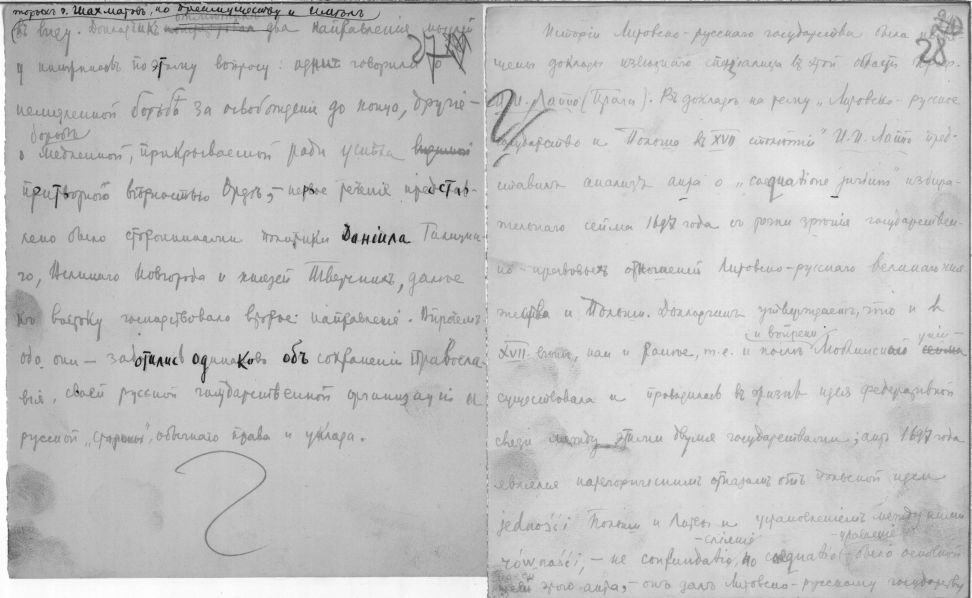 торыхъ д. Шахматовъ, по преимуществу и имѣлъ
въ виду. Докладчикъ отмѣтилъ два направленія мыслей
27
и по этому вопросу: одни говорили о
немедленной борьбѣ за освобожденіе до конца, другіе –
борьбѣ
о медленной, прикрываемой ради успѣха
притворной вѣрностью Ордѣ, – первое теченіе представ-
лено было сторонниками политики Даніила Галицка-
го, Великаго Новгорода и князей Тверскихъ, далѣе
къ востоку господствовало второе направленіе. Впрочемъ
оба они – заботились одинаково объ сохраненіи Правосла-
вія, своей русской государственной организаціи и
русской „старины", обычнаго права и уклада.
28
Исторіи Литовско-русскаго государства былъ
щены доклады извѣстнаго спеціалиста въ этой области проф.
И.И. Лаппо (Прага). Въ докладѣ на тему „Литовско-русское
государство и Польша въ XVII столѣтіи" И.И. Лаппо пред-
ставилъ анализъ акта о „coaequatione jurium" избира-
тельнаго сейма 1697 года съ точки зрѣнія государствен-
но-правовыхъ отношеній Литовско-русскаго великаго кня-
жества и Польши. Докладчикъ утверждаетъ, что и въ
и вопреки уніи
XVII вѣкѣ, какъ и ранѣе, т.е. и послѣ Люблинской сейма
существовала и проводилась въ жизнь идея федеративной
связи между этими двумя государствами; актъ 1697 года
является категорическимъ отказомъ отъ польской идеи
jedności Польши и Литвы и установленіемъ между ними
– сліяніе уравненіе
równości, – не confundatio, но coaequatio – было основной
этого акта, – онъ далъ Литовско-русскому государству